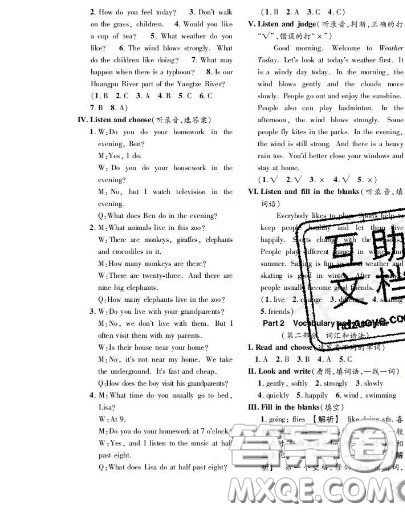 2. How do you feel today? 3. Don't walk
on the grass, children. 4. Would you like
a cup of tea? 5. What weather do you
like? 6. The wind blows strongly. What
do the children like doing? 7. What may
happen when there is a typhoon? 8. Is our
Huangpu River part of the Yangtze River?
(1. B 2. C 3. A 4. B 5. C 6. C
7. B 8. A)
IV. Listen and choose(听录音,选答案)
1. W:Do you do your homework in the
evening, Ben?
M:Yes, I do.
W:Do you do your homework in the
evening?
M:No, but I watch television in the
evening.
Q:What does Ben do in the evening?
2. M:What animals live in this zoo?
W:There are monkeys, giraffes, elephants
and crocodiles in it.
M:How many monkeys are there?
W:There are twenty-three. And there are
nine big elephants.
Q:How many elephants live in the zoo?
3. W:Do you live with your grandparents?
M:No, we don't live together. But I
often visit them with my parents.
W:Is their house near your home?
M:No, it's not near my home. We take
the underground. It's fast and cheap.
Q:How does the boy visit his grandparents?
4. M:What time do you usually go to bed,
Lisa?
W:At 9.
M:Do you do your homework at 7 o'clock?
W:Yes, and I listen to the music at half
past eight.
Q:What does Lisa do at half past eight?
(1. B 2. A 3. C 4. C)
V. Listen and judge(听录音,判断,正确的打
"√",错误的打"×")
Good morning. Welcome to Weather
Today. Let's look at today's weather first. It
is a windy day today. In the morning, the
wind blows gently and the clouds move
slowly. People go out and enjoy the sunshine.
People also can play badminton. In the
afternoon, the wind blows strongly. Some
people fly kites in the parks. In the evening,
the wind is still strong. And there is a heavy
rain too. You'd better close your windows and
stay at home.
(1. √ 2. √ 3. × 4. √ 5. ×)
VI. Listen and fill in the blanks(听录音,填
词语)
Everybody likes to play. Sports help to
keep people healthy and let them live
happily. Sports change with the
People play different games in
summer. Suting is fun in
skating is good in winter.
people usually become good friends.
(1. live 2. change 3. 4. skating
5. friends)
Part 2 Vocabulary
(第二部分 词汇和语法)
I. Read and choose
1. A 2. B 3. B 4. A 5. C
II. Look and write(看图,填词语,一线一词)
1. gently, softly 2. strongly 3. slowly
4. quickly 5. happily 6. wind, swimming
III. Fill in the blanks(填空)
1. going; flies 【解析】 like doing sth. 喜
互助
文档
hdzuoye.com
答案卷
MXQE.COM